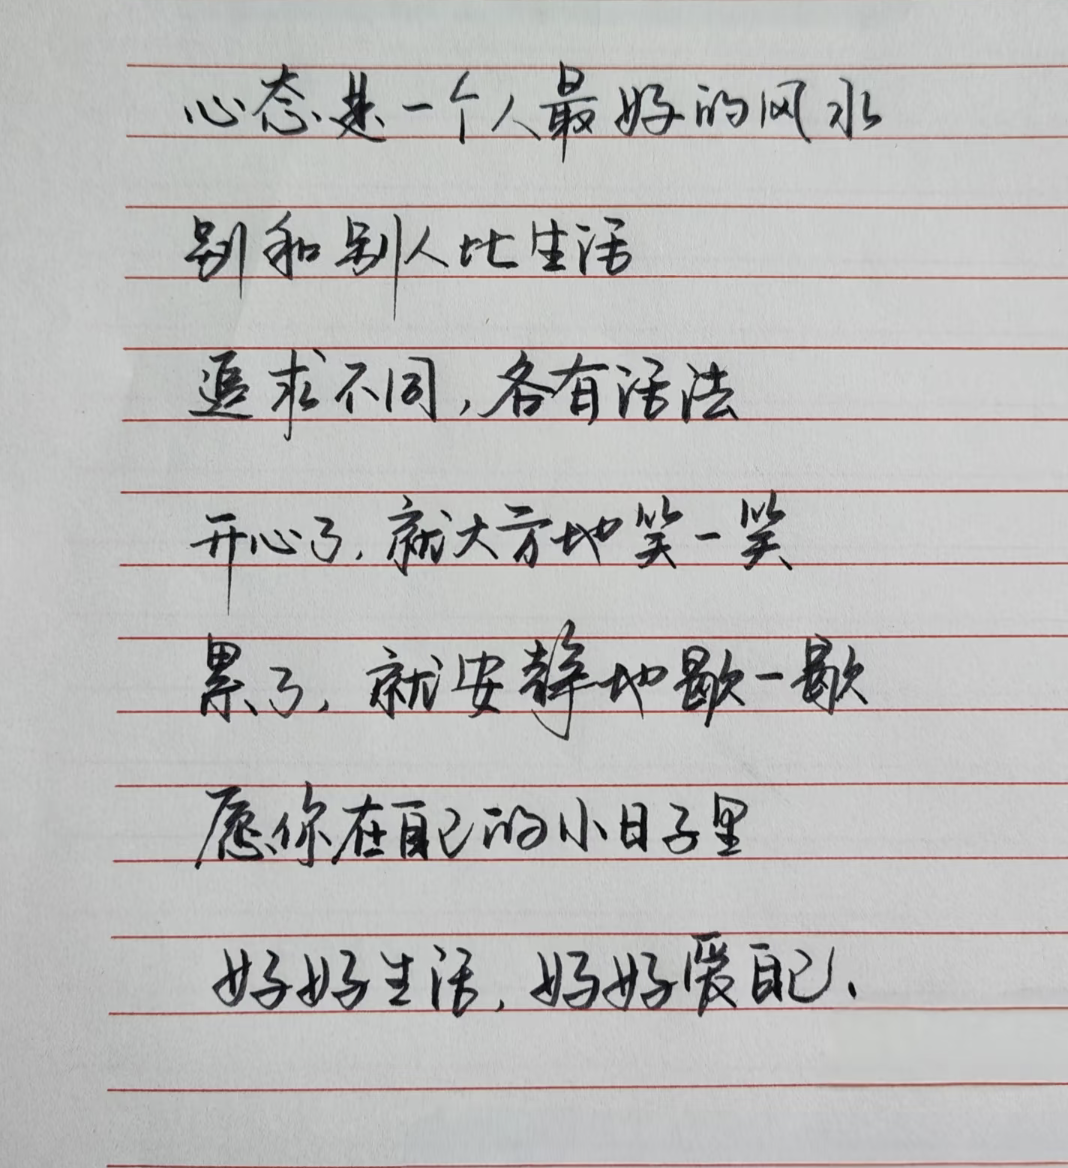 心态是一个人最好的风水
别和别人比生活
追求不同,各有活法
开心了,就大方地笑一笑
累了,就安静地歇一歇
愿你在自己的小日子里
好好生活,好好爱自己、